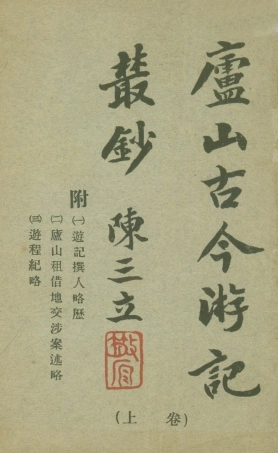 廬山古今游記
叢鈔 陳三立
附
㈠遊記撰人略歷
㈡廬山租借地交涉案述略
㈢遊程紀略
(上 卷)